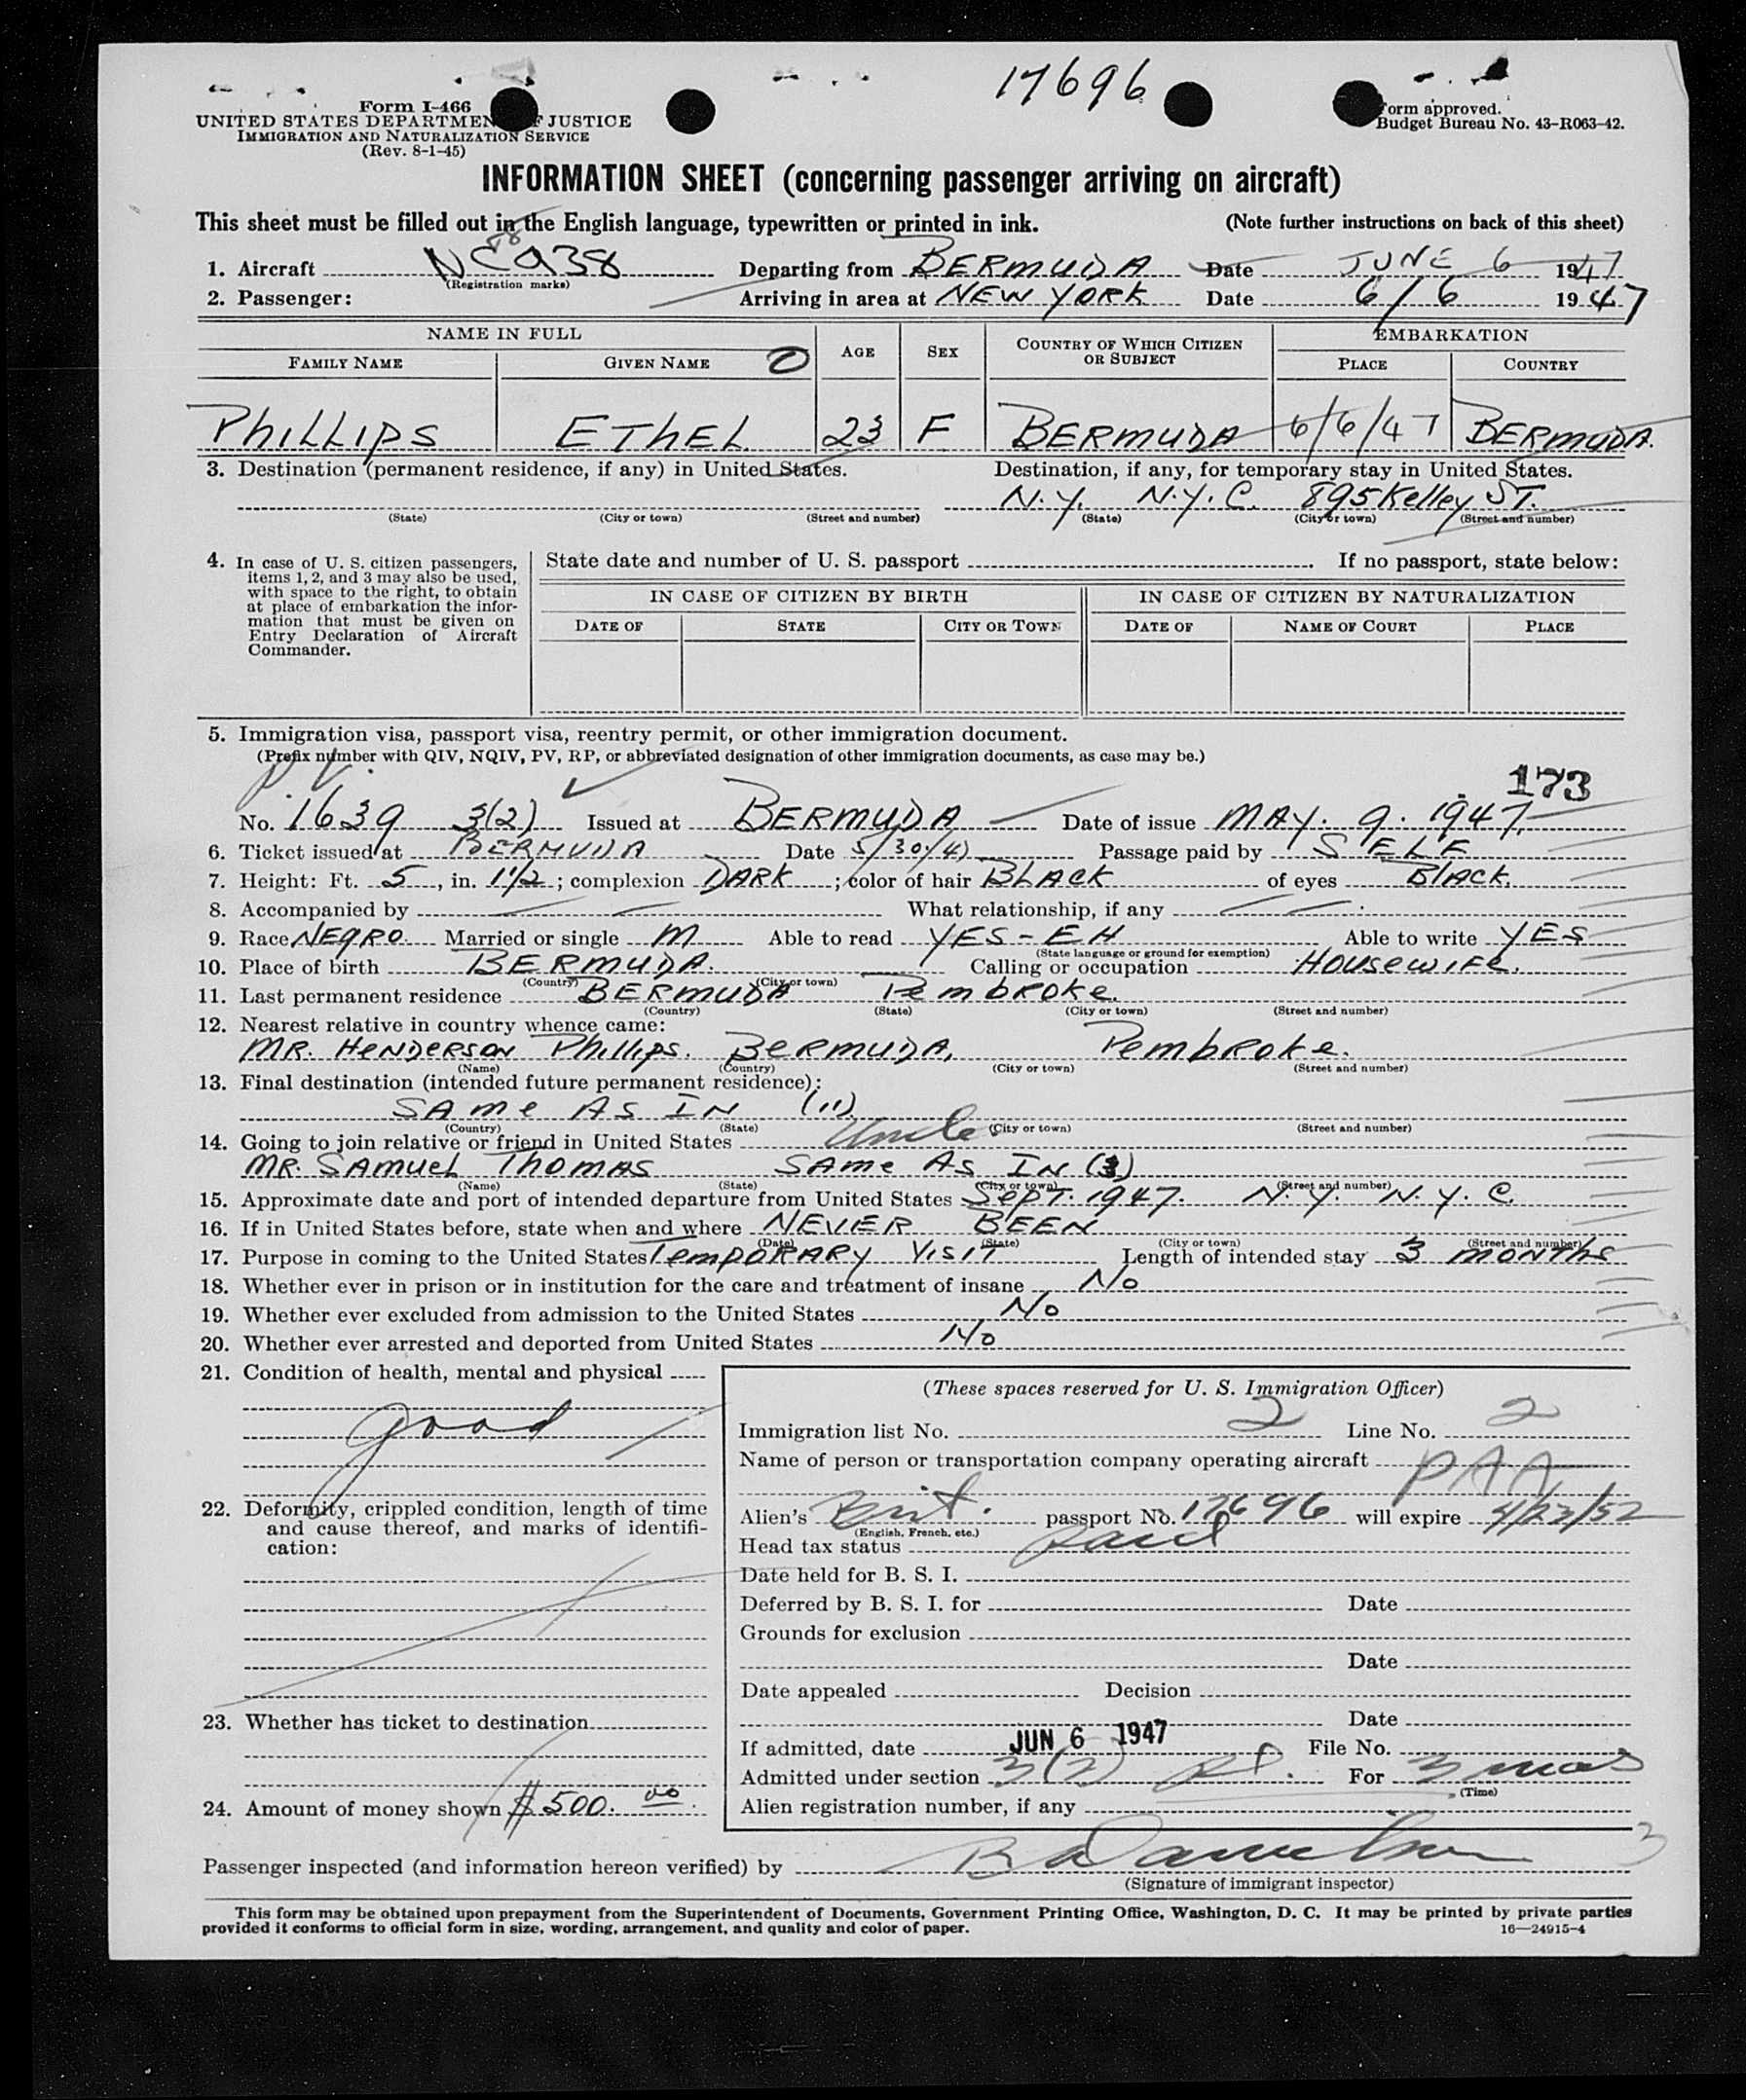 17696
Form I-466
UNITED STATES DEPARTMENT OF JUSTICE
IMMIGRATION AND NATURALIZATION SERVICE
(Rev. 8-1-45)
Form approved.
Budget Bureau No. 43-R063-42.
INFORMATION SHEET (concerning passenger arriving on aircraft)
This sheet must be filled out in the English language, typewritten or printed in ink. (Note further instructions on back of this sheet)
1. Aircraft NC 938 Departing from BERMUDA Date JUNE 6 1947
(Registration marks)
2. Passenger: Arriving in area at NEW YORK Date 6/6 1947
NAME IN FULL AGE SEX COUNTRY OF WHICH CITIZEN OR SUBJECT EMBARKATION
FAMILY NAME GIVEN NAME PLACE COUNTRY
PHILLIPS ETHEL 23 F BERMUDA 6/6/47 BERMUDA.
3. Destination (permanent residence, if any) in United States. Destination, if any, for temporary stay in United States.
N.Y. N.Y.C. 895 Kelley ST.
(State) (City or town) (Street and number) (State) (City or town) (Street and number)
4. In case of U. S. citizen passengers, items 1, 2, and 3 may also be used, with space to the right, to obtain at place of embarkation the information that must be given on Entry Declaration of Aircraft Commander.
State date and number of U. S. passport . If no passport, state below:
IN CASE OF CITIZEN BY BIRTH IN CASE OF CITIZEN BY NATURALIZATION
DATE OF STATE CITY OR TOWN DATE OF NAME OF COURT PLACE
5. Immigration visa, passport visa, reentry permit, or other immigration document.
(Prefix number with QIV, NQIV, PV, RP, or abbreviated designation of other immigration documents, as case may be.)
P.V. 173
No. 1639 3(2) Issued at BERMUDA Date of issue MAY. 9. 1947
6. Ticket issued at BERMUDA Date 5/30/47 Passage paid by SELF
7. Height: Ft. 5, in. 1 1/2; complexion DARK; color of hair BLACK of eyes BLACK.
8. Accompanied by What relationship, if any
9. Race NEGRO. Married or single M Able to read YES-EH Able to write YES
(State language or ground for exemption)
10. Place of birth BERMUDA. Calling or occupation HOUSEWIFE.
(Country) (City or town)
11. Last permanent residence BERMUDA Pembroke.
(Country) (State) (City or town) (Street and number)
12. Nearest relative in country whence came:
MR. HENDERSON Phillips. BERMUDA, Pembroke.
(Name) (Country) (City or town) (Street and number)
13. Final destination (intended future permanent residence):
SAME AS IN (11)
(Country) (State) (City or town) (Street and number)
14. Going to join relative or friend in United States Uncle
MR. SAMUEL THOMAS SAME AS IN (3)
(Name) (State) (City or town) (Street and number)
15. Approximate date and port of intended departure from United States SEPT. 1947. N.Y. N.Y.C.
16. If in United States before, state when and where NEVER BEEN
(Date) (State) (City or town) (Street and number)
17. Purpose in coming to the United States TEMPORARY VISIT Length of intended stay 3 MONTHS
18. Whether ever in prison or in institution for the care and treatment of insane No
19. Whether ever excluded from admission to the United States No
20. Whether ever arrested and deported from United States No
21. Condition of health, mental and physical
good
22. Deformity, crippled condition, length of time and cause thereof, and marks of identification:
23. Whether has ticket to destination
24. Amount of money shown $ 500. 00
(These spaces reserved for U. S. Immigration Officer)
Immigration list No. 2 Line No. 2
Name of person or transportation company operating aircraft PAA
Alien's Brit. passport No. 17696 will expire 4/23/52
(English, French, etc.)
Head tax status paid
Date held for B. S. I.
Deferred by B. S. I. for Date
Grounds for exclusion
Date
Date appealed Decision
Date
If admitted, date JUN 6 1947 File No.
Admitted under section 3(2) For 3 mos
(Time)
Alien registration number, if any
3
Passenger inspected (and information hereon verified) by
(Signature of immigrant inspector)
This form may be obtained upon prepayment from the Superintendent of Documents, Government Printing Office, Washington, D. C. It may be printed by private parties
provided it conforms to official form in size, wording, arrangement, and quality and color of paper. 16—24915-4